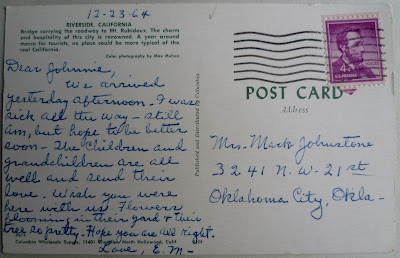 12-23-64
RIVERSIDE, CALIFORNIA
Bridge carrying the roadway to Mt. Rubidoux. The charm
and hospitality of this city is renowned. A year around
mecca for tourists, no place could be more typical of the
real California.
Color photography by Max Mahan
Dear Johnnie,
We arrived
yesterday afternoon. I was
sick all the way - still
am, but hope to be better
soon - The children and
grandchildren are all
well and send their
love. Wish you were
here with us. Flowers
blooming in their yard & their
tree so pretty. Hope you are all right.
Love, E. M-
Columbia Wholesale Supply, 11401 North Hollywood, Calif
Published and Distributed by Columbia
4¢
U.S. POSTAGE
POST CARD
Address
Mrs. Mack Johnstone
3241 N.W-21st
Oklahoma City, Okla-